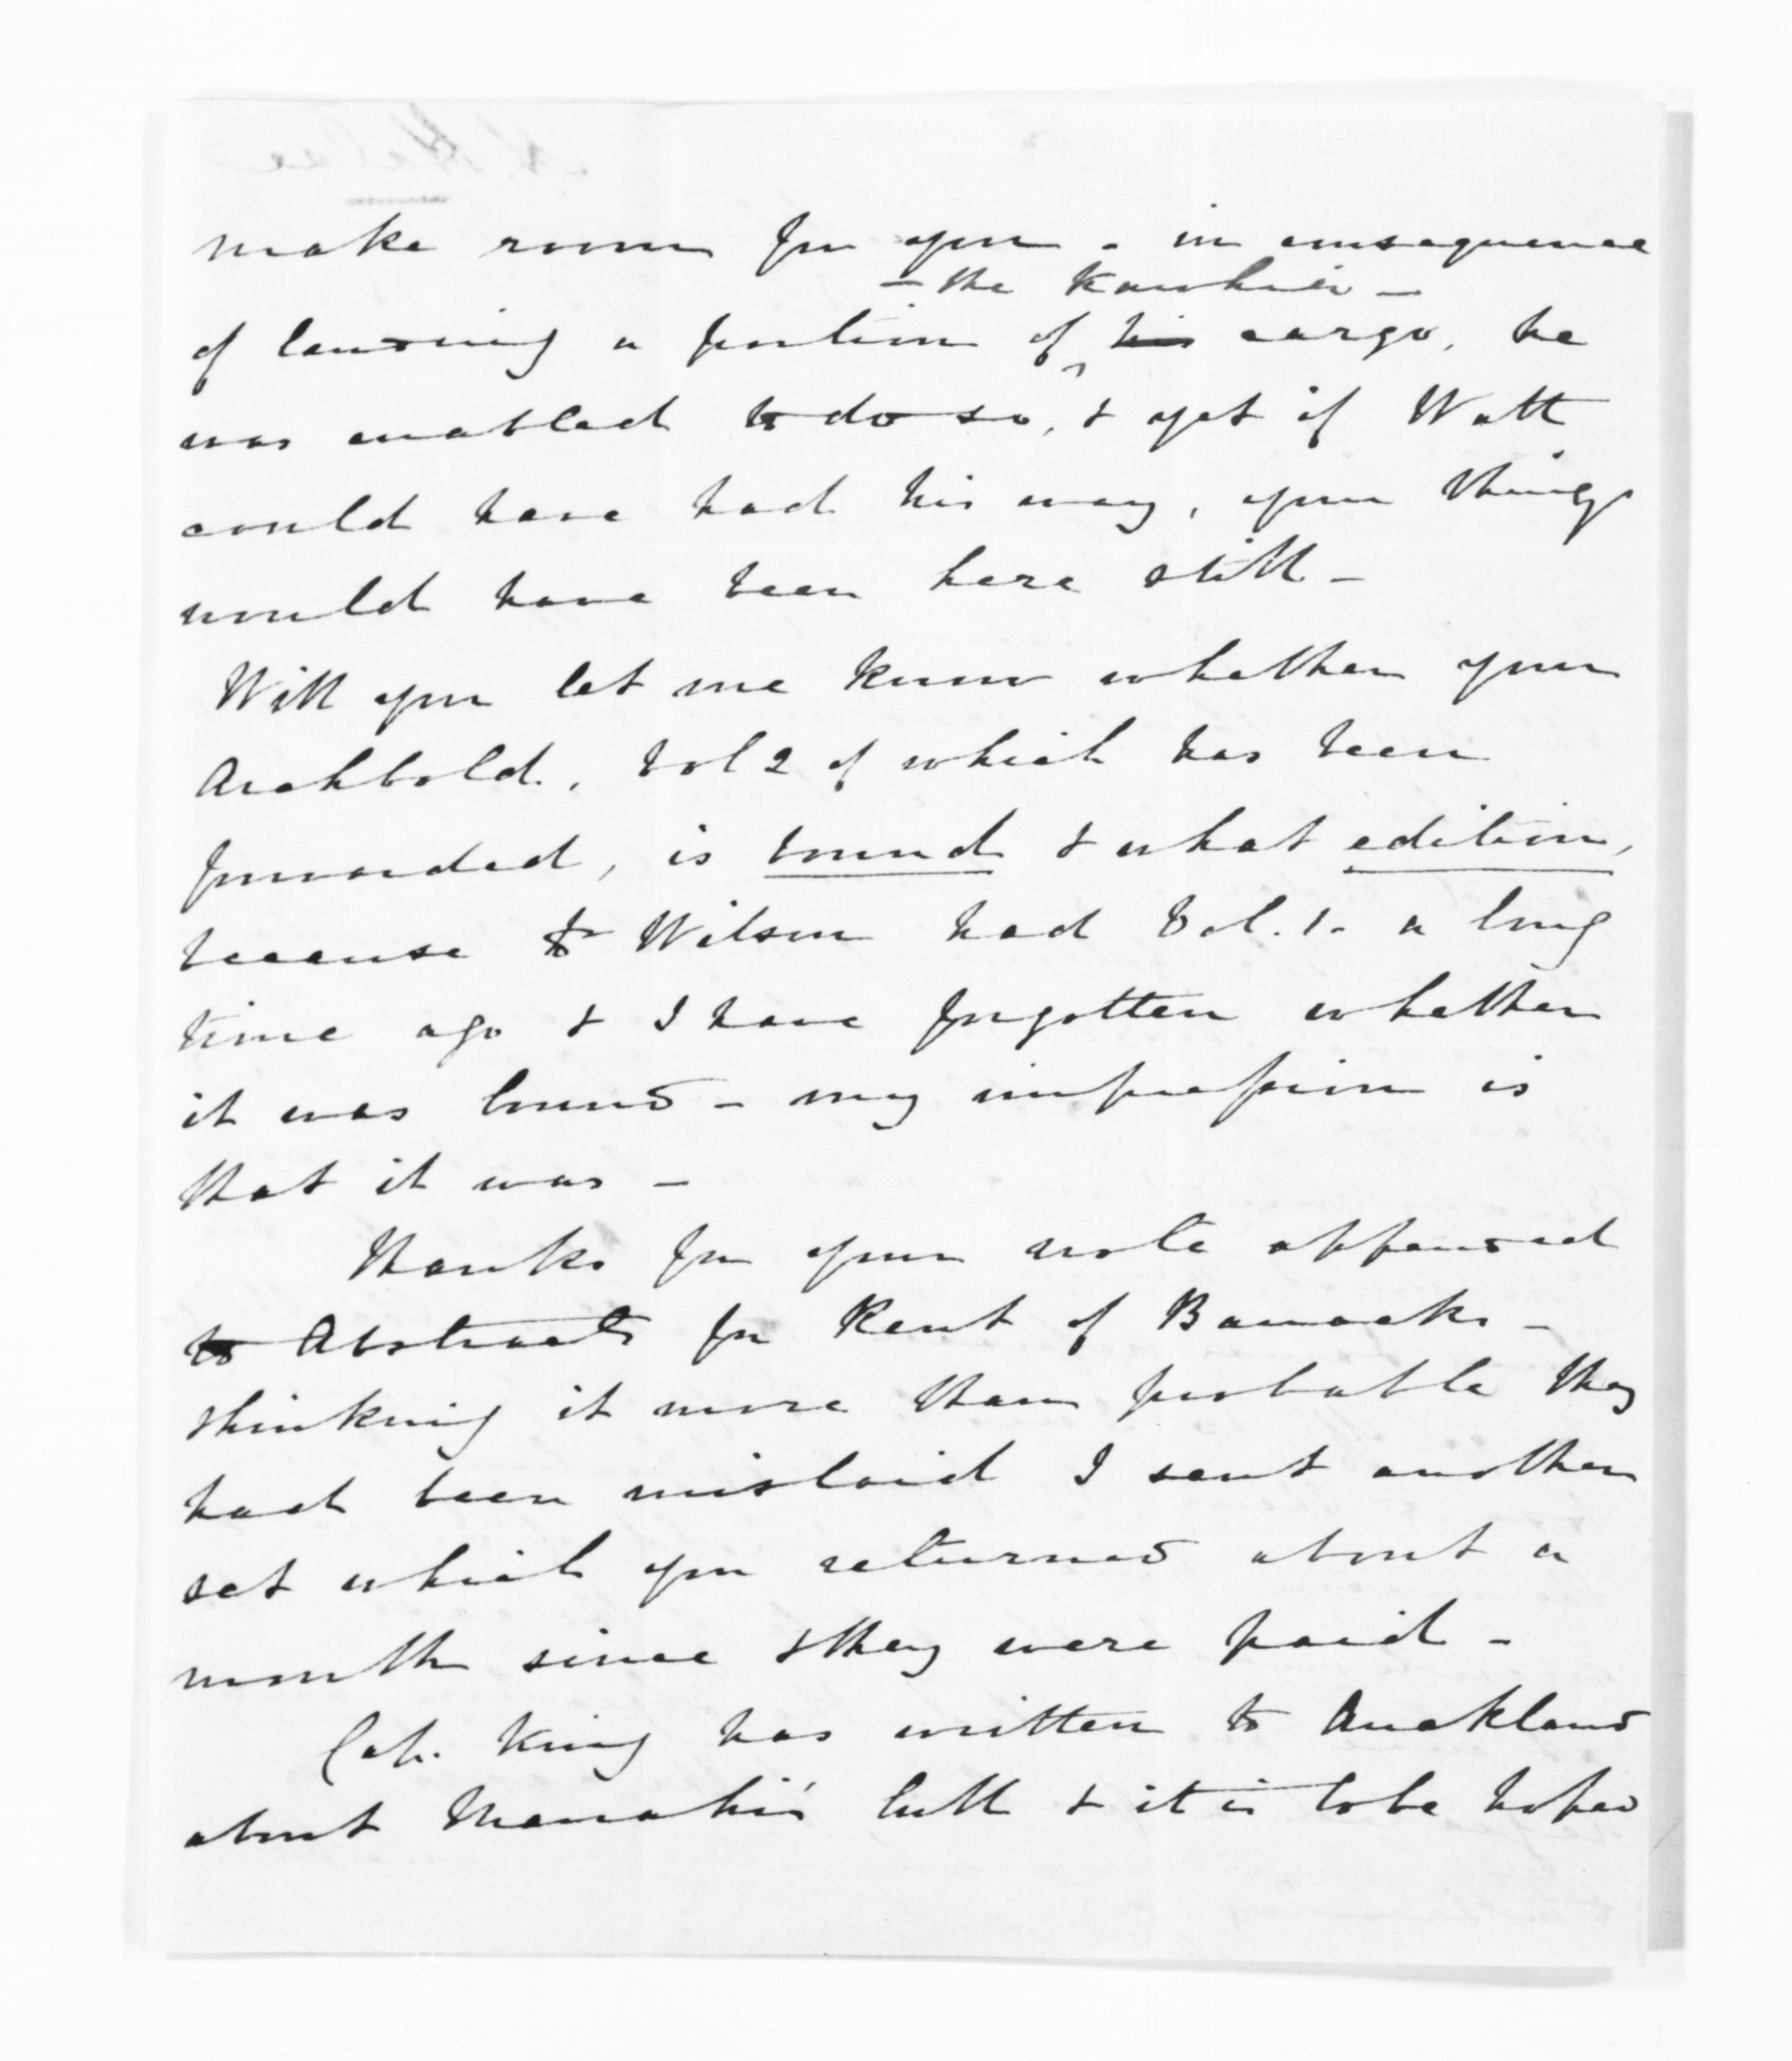 make room for you - in consequence
- the Kawhia -
of landing a portion of his cargo, he
was enabled to do so, & yet if Watt
could have had his way, your things
would have been here still -
Will you let me know whether your
Archbold, Vol 2 of which has been
forwarded, is bound & what edition,
because Wilson had Vol. 1. a long
time ago & I have forgotten whether
it was bound - my impression is
that it was -
Thanks for your note appended
to Abstracts for Rent of Barracks -
thinking it more than probable they
had been mislaid I sent another
set which you returned about a
month since & they were paid -
Cap. King has written to Auckland
about bull & it is to be hoped